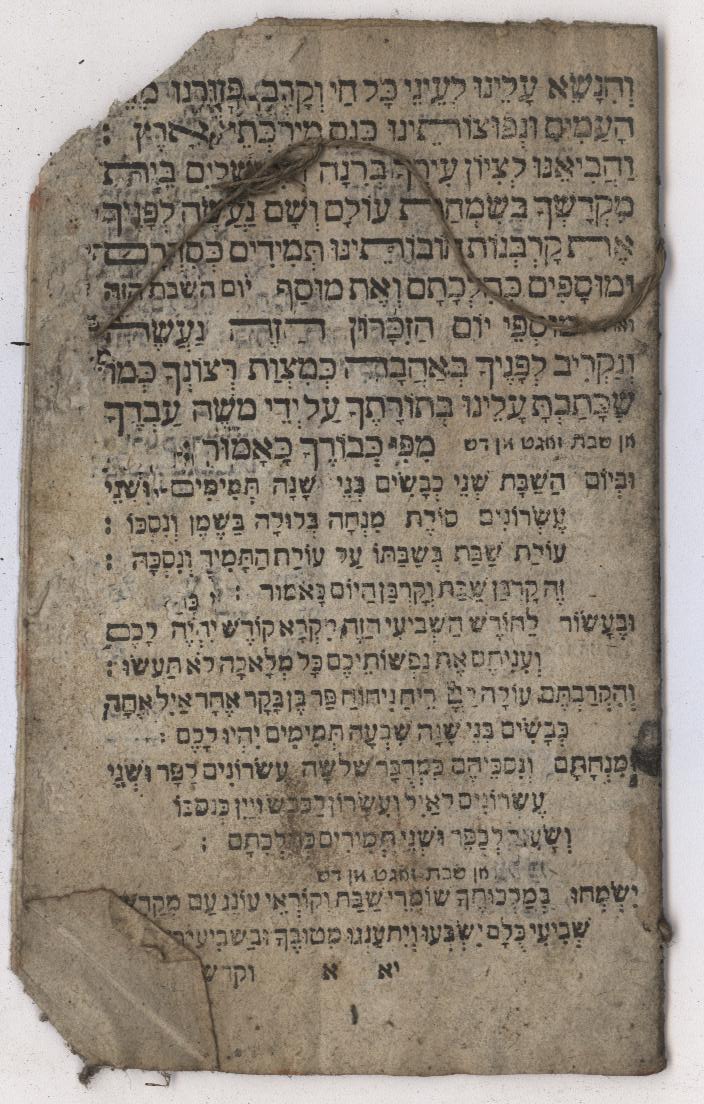 וְהִנָּשֵׂא עָלֵינוּ לְעֵינֵי כָּל חַי וְקָרֵב פְּזוּרֵנוּ
הָעַמִּים וּנְפוּצוֹתֵינוּ כַּנֵּס מִיַּרְכְּתֵי אָרֶץ :
וַהֲבִיאֵנוּ לְצִיּוֹן עִירְךָ בְּרִנָּה בֵּית
מִקְדָּשְׁךָ בְּשִׂמְחַת עוֹלָם וְשָׁם נַעֲשֶׂה לְפָנֶיךָ
אֶת קָרְבְּנוֹת חוֹבוֹתֵינוּ תְּמִידִים כְּסִדְרָם
וּמוּסָפִים כְּהִלְכָתָם וְאֶת מוּסַף יום השבת הזה
מוּסְפֵי יוֹם הַזִּכָּרוֹן הַזֶּה נַעֲשֶׂה
וְנַקְרִיב לְפָנֶיךָ בְּאַהֲבָה כְּמִצְוַת רְצוֹנְךָ כְּמוֹ
שֶׁכָּתַבְתָּ עָלֵינוּ בְּתוֹרָתֶךָ עַל יְדֵי מֹשֶׁה עַבְדֶּךָ
מִפִּי כְבוֹדֶךָ כָּאָמוּר : אן שבת זאגט אן דש
וּבְיוֹם הַשַּׁבָּת שְׁנֵי כְבָשִׂים בְּנֵי שָׁנָה תְּמִימִים וּשְׁנֵי
עֶשְׂרוֹנִים סוֹלֶת מִנְחָה בְּלוּלָה בַשֶּׁמֶן וְנִסְכּוֹ :
עוֹלַת שַׁבַּת בְּשַׁבַּתּוֹ עַל עוֹלַת הַתָּמִיד וְנִסְכָּהּ :
זֶה קָרְבַּן שַׁבָּת וְקָרְבַּן הַיּוֹם כָּאמוּר :
וּבֶעָשׂוֹר לַחוֹדֶשׁ הַשְּׁבִיעִי הַזֶּה מִקְרָא קוֹדֶשׁ יִהְיֶה לָכֶם
וְעִנִּיתֶם אֶת נַפְשׁוֹתֵיכֶם כָּל מְלָאכָה לֹא תַעֲשׂוּ :
וְהִקְרַבְתֶּם עוֹלָה רֵיחַ נִיחוֹחַ פַּר בֶּן בָּקָר אֶחָד אַיִל אֶחָד
כְּבָשִׂים בְּנֵי שָׁנָה שִׁבְעָה תְּמִימִים יִהְיוּ לָכֶם :
וּמִנְחָתָם וְנִסְכֵּיהֶם כִּמְדֻבָּר שְׁלֹשָׁה עֶשְׂרוֹנִים לַפָּר וּשְׁנֵי
עֶשְׂרוֹנִים לָאַיִל וְעִשָּׂרוֹן לַכֶּבֶשׂ וְיַיִן כְּנִסְכּוֹ
וְשָׂעִיר לְכַפֵּר וּשְׁנֵי תְמִידִים כְּהִלְכָתָם :
אן שבת זאגט אן דש
יִשְׂמְחוּ בְמַלְכוּתְךָ שׁוֹמְרֵי שַׁבָּת וְקוֹרְאֵי עוֹנֶג עַם
שְׁבִיעִי כֻּלָּם יִשְׂבְּעוּ וְיִתְעַנְּגוּ מִטּוּבֶךָ
יא א